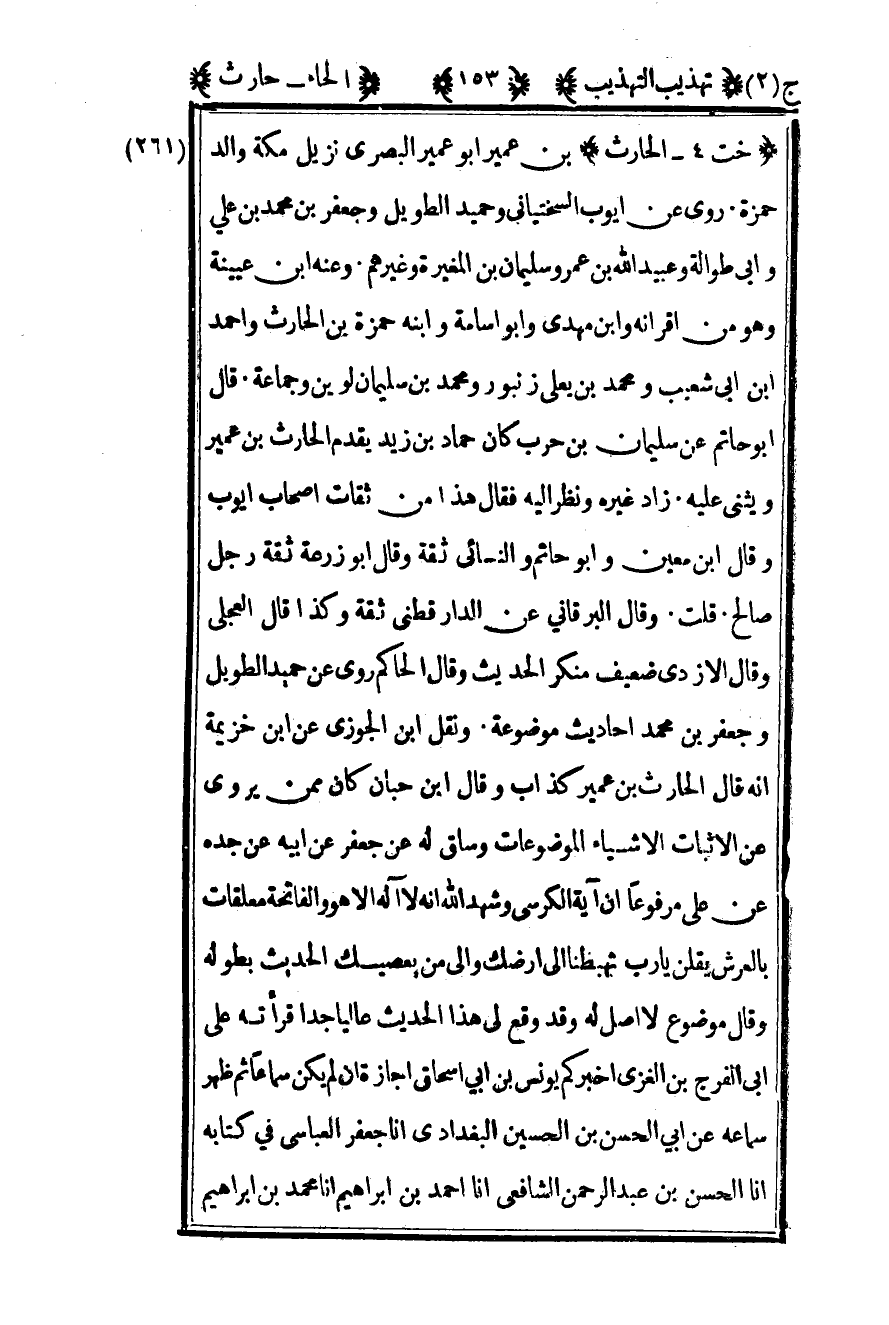 ج (٢) ﴿ تهذيب التهذيب ﴾ ﴿ ١٥٣ ﴾ ﴿ الحاء ـ حارث ﴾
﴿ خت ٤ ـ الحارث ﴾ بن عمير ابو عمير البصرى نزيل مكة والد (٢٦١)
حمزة . روى عن ايوب السختيانى وحميد الطويل وجعفر بن محمد بن علي
و ابى طوالة وعبيد الله بن عمر وسليمان بن المغيرة وغيرهم . وعنه ابن عيينة
وهو من اقرانه وابن مهدى وابو اسامة و ابنه حمزة بن الحارث واحمد
ابن ابى شعيب و محمد بن يعلى زنبور ومحمد بن سليمان لوين وجماعة . قال
ابو حاتم عن سليمان بن حرب كان حماد بن زيد يقدم الحارث بن عمير
و يثنى عليه . زاد غيره ونظر اليه فقال هذا من ثقات اصحاب ايوب
و قال ابن معين و ابو حاتم و النسائى ثقة وقال ابو زرعة ثقة رجل
صالح . قلت . وقال البرقاني عن الدار قطنى ثقة وكذا قال العجلى
وقال الازدى ضعيف منكر الحديث وقال الحاكم روى عن حميد الطويل
و جعفر بن محمد احاديث موضوعة . ونقل ابن الجوزى عن ابن خزيمة
انه قال الحارث بن عمير كذاب و قال ابن حبان كان ممن يروى
عن الاثبات الاشياء الموضوعات وساق له عن جعفر عن ابيه عن جده
عن على مرفوعاً ان آية الكرسى وشهد الله انه لا آله الا هو والفاتحة معلقات
بالعرش يقلن يارب تهبطنا الى ارضك والى من يعصيك الحديث بطوله
وقال موضوع لا اصل له وقد وقع لى هذا الحديث عاليا جدا قرأته على
ابى الفرج بن الغزى اخبركم يونس بن ابي اسحاق اجازة ان لم يكن سماعاً ثم ظهر
سماعه عن ابي الحسن بن الحسين البغدادى انا جعفر العباسى في كتابه
انا الحسن بن عبد الرحمن الشافعى انا احمد بن ابراهيم انا محمد بن ابراهيم